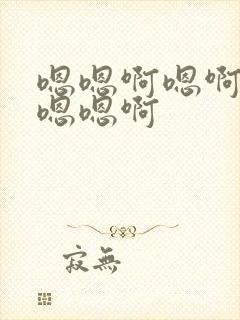 嗯嗯啊嗯啊
嗯嗯啊
寂無